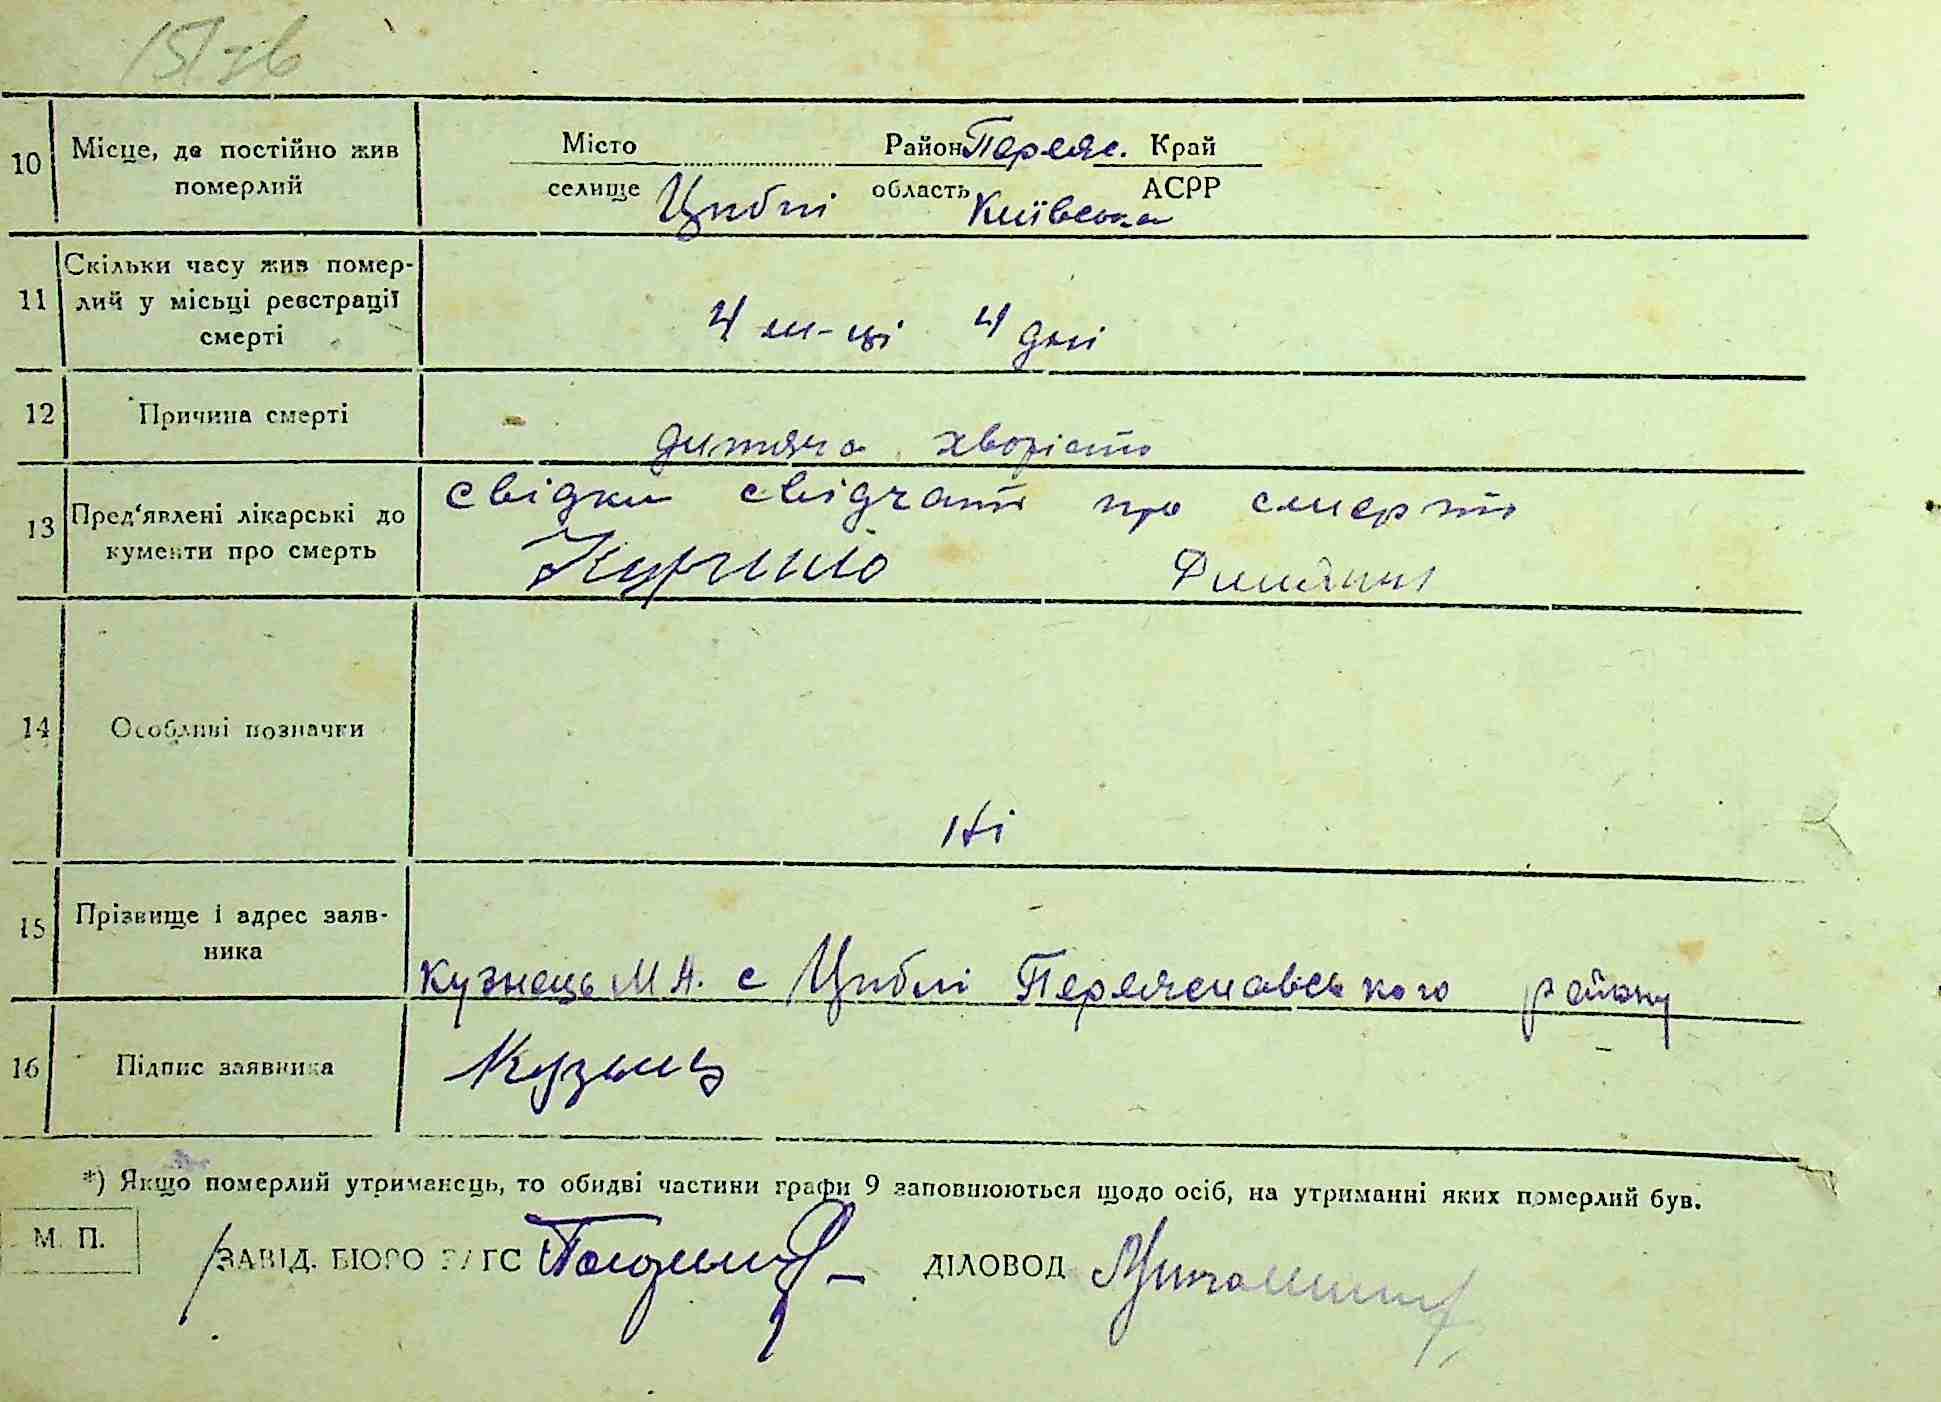 10 Місце, де постійно жив померлий
Місто Район Переяс. Край
селище Циблі область Київська АСРР
11 Скільки часу жив помер-
лий у місьці реєстрації
смерті
4 м-ці 4 дні
12 Причина смерті
дитяча хворість
13 Пред'явлені лікарські до
кументи про смерть
свідки свідчать про смерть
14 Особливі позначки
Ні
15 Прізвище і адрес заяв-
ника
Кузнець М А. с Циблі Переяславського району
16 Підпис заявника
*) Якщо померлий утриманець, то обидві частини графи 9 заповнюються щодо осіб, на утриманні яких померлий був.
М. П.
ЗАВІД. БЮРО ЗАГС ДІЛОВОД